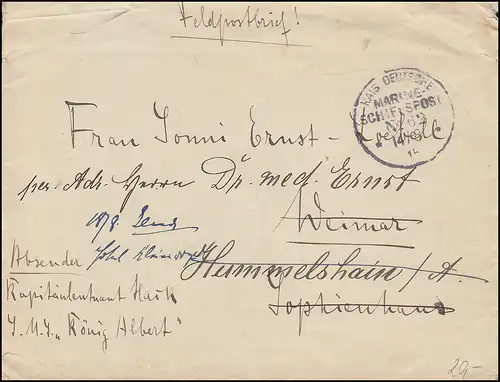 Feldpostbrief!
KAIS. DEUTSCHE
MARINE-
SCHIFFSPOST
No 62
14/8
14
Frau Tonni Ernst-
per Adr. Herrn Dr. med. Ernst
Weimar
18/8. Jena
Hotel
Hummelshain /A.
Sophienhaus
Absender
Kapitänleutnant Hack
S.M.S. „König Albert"
20,-